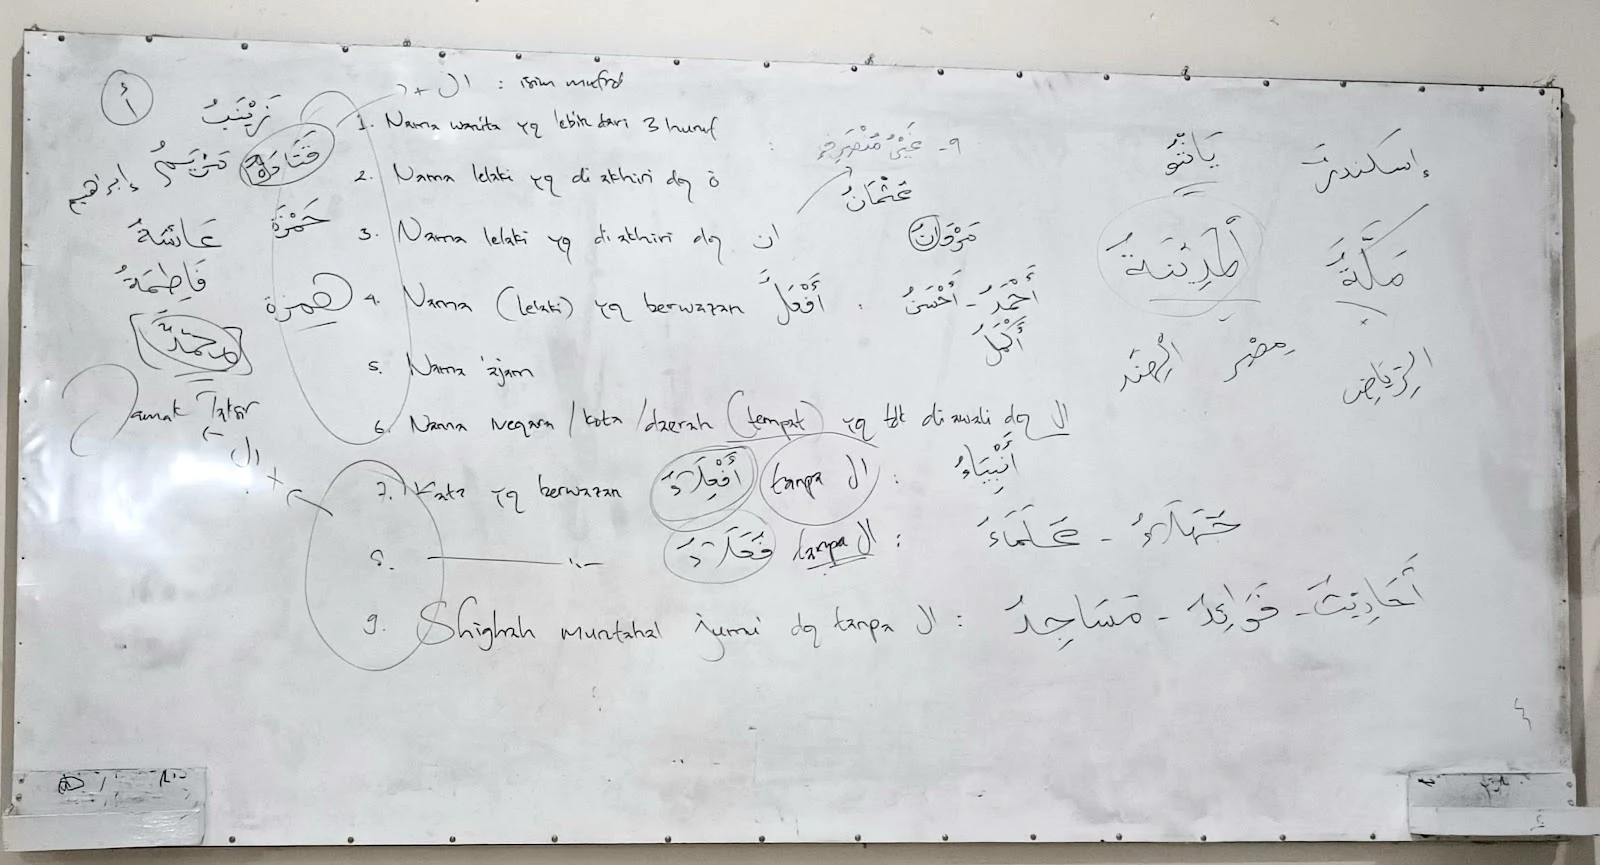 أ
ال + : isim mufrod
زَيْنَبُ
1. Nama wanita yg lebih dari 3 huruf
قَتَادَةُ
مَرْيَمُ
إبراهيم
2. Nama lelaki yg diakhiri dg ة
٩- غَيْرُ مُنْصَرِفٍ
عُثْمَانُ
عَائِشَةُ
حَمْزَةُ
3. Nama lelaki yg diakhiri dg ان
مَرْوَانُ
فَاطِمَةُ
همزة
4. Nama (lelaki) yg berwazan أَفْعَلُ : أَحْمَدُ - أَحْسَنُ
أَكْمَلُ
5. Nama 'ajam
Jamak Taksir
ال
6. Nama Negara/kota/daerah (tempat) yg tdk diawali dg ال
7. Kata yg berwazan أَفْعِلَاءُ tanpa ال : أَنْبِيَاءُ
8. فُعَلَاءُ tanpa ال : عُلَمَاءَ - جُهَلَاءُ
9. Shighah muntahal jumu' dg tanpa ال : مَسَاجِدُ - فَوَائِدُ - أَحَادِيثَ
إسكندرية
المَدِيْنَةُ
مَكَّةُ
الهِنْدُ
مِصْر
الرِّيَاضِ